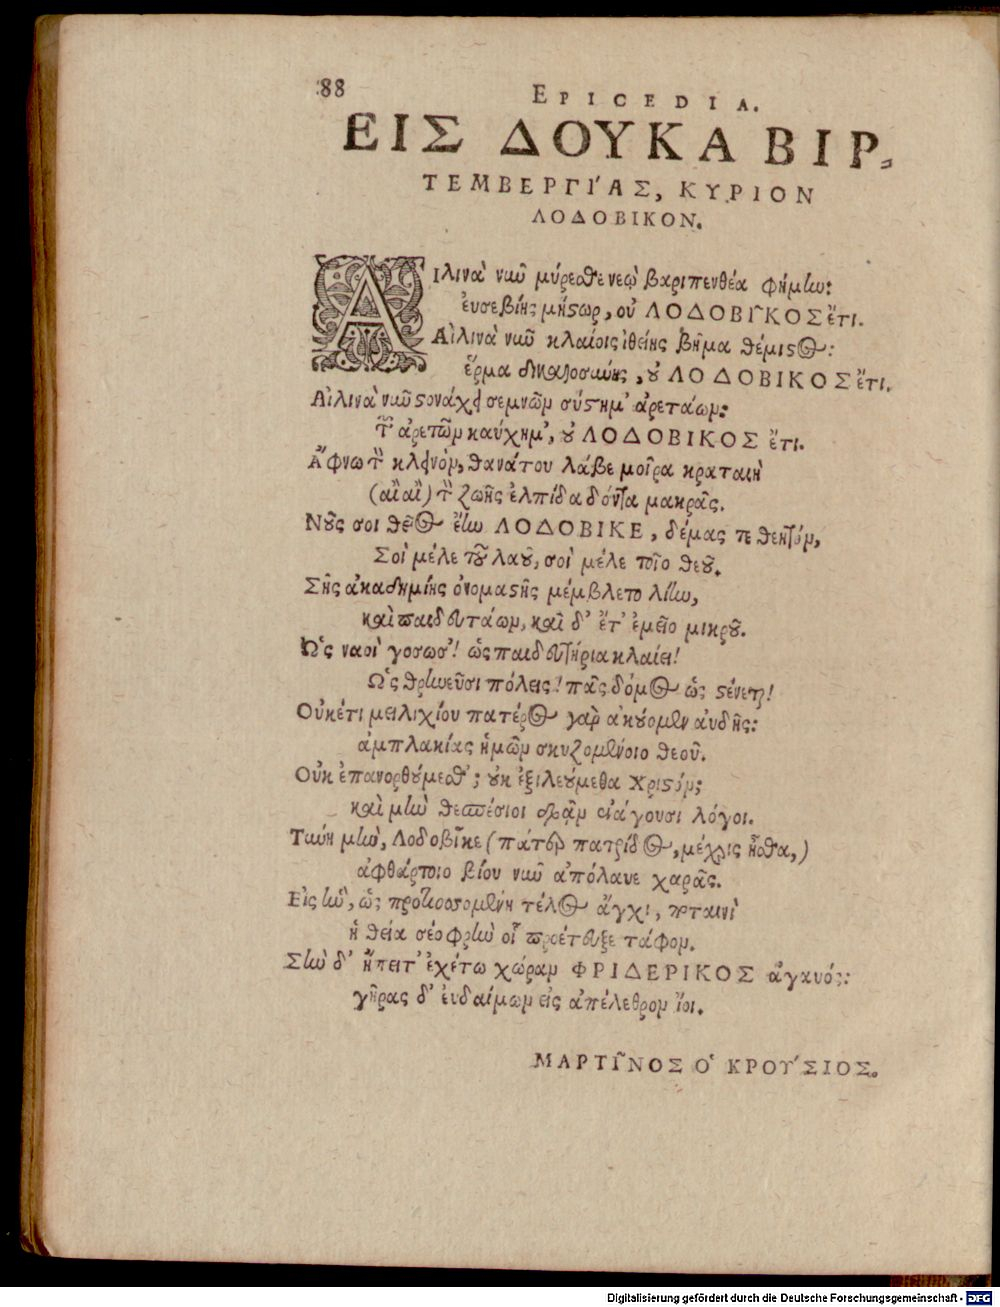 88
EPICEDIA.
ΕΙΣ ΔΟΥΚΑ ΒΙΡ-
ΤΕΜΒΕΡΓΙΆΣ, ΚΥΡΙΟΝ
ΛΟΔΟΒΙΚΟΝ.
ΑΙλινα νῦν μύρεσθε νεῷ βαριπενθέα φήμην:
ἐυσεβίης μήστωρ, οὐ ΛΟΔΟΒΙ͂ΚΟΣ ἔτι.
Αἴλινα νῦν κλαίοις ἰθείης βῆμα θέμιστος:
ἕρμα δικαιοσύνης, οὐ ΛΟΔΟΒΙΚΟΣ ἔτι.
Αἴλινα νῦν στονάχει σεμνῶν σύστημ' ἀρετάων:
τῶν ἀρετῶν καύχημ', οὐ ΛΟΔΟΒΙΚΟΣ ἔτι.
Ἄφνω τὸν κλεινὸν, θανάτου λάβε μοῖρα κραταιὴ
(αἲ αἲ) τὸν ζωῆς ἐλπίδα δόντα μακρᾶς.
Νοῦς σοι θεῖος ἔην ΛΟΔΟΒΙΚΕ, δέμας τε θεητόν,
Σοὶ μέλε τοῦ λαοῦ, σοὶ μέλε τοῖο θεοῦ.
Σῆς ἀκαδημίης ὀνομαστῆς μέμβλετο λίην,
καὶ παιδευτάων, καὶ δ' ἔτ' ἐμεῖο μικροῦ.
Ὡς ναοὶ γοόωσ'! ὡς παιδευτήρια κλαίει!
Ὡς θρηνεῦσι πόλεις! πᾶς δόμος ὡς στένεται!
Οὐκέτι μειλιχίου πατέρος γὰρ ἀκούομεν αὐδῆς:
ἀμπλακίας ἡμῶν σκυζομένοιο θεοῦ.
Οὐκ ἐπανορθούμεσθ'; οὐκ ἐξιλεούμεθα Χριστόν;
καὶ μὴν θεσπέσιοι σφᾶν ἀιάγουσι λόγοι.
Ταύτη μὴν, Λοδοβῖκε (πάτερ πατρίδος, μέχρις ἦσθα,)
ἀφθάρτοιο βίου νῦν ἀπόλαυε χαρᾶς.
Εἰς ἣν, ὡς προϊοσομένη τέλος ἄγχι, κραταινὶ
ἡ θεία σέο φρὴν οἷ προέτευξε τάφον.
Σὴν δ' ἤπειτ' ἐχέτω χώραν ΦΡΙΔΕΡΙΚΟΣ ἀγαυός:
γῆρας δ' ἐυδαίμων εἰς ἀπέλεθρον ἴοι.
ΜΑΡΤΙ͂ΝΟΣ Ὁ ΚΡΟΎΣΙΟΣ.
Digitalisierung gefördert durch die Deutsche Forschungsgemeinschaft - DFG